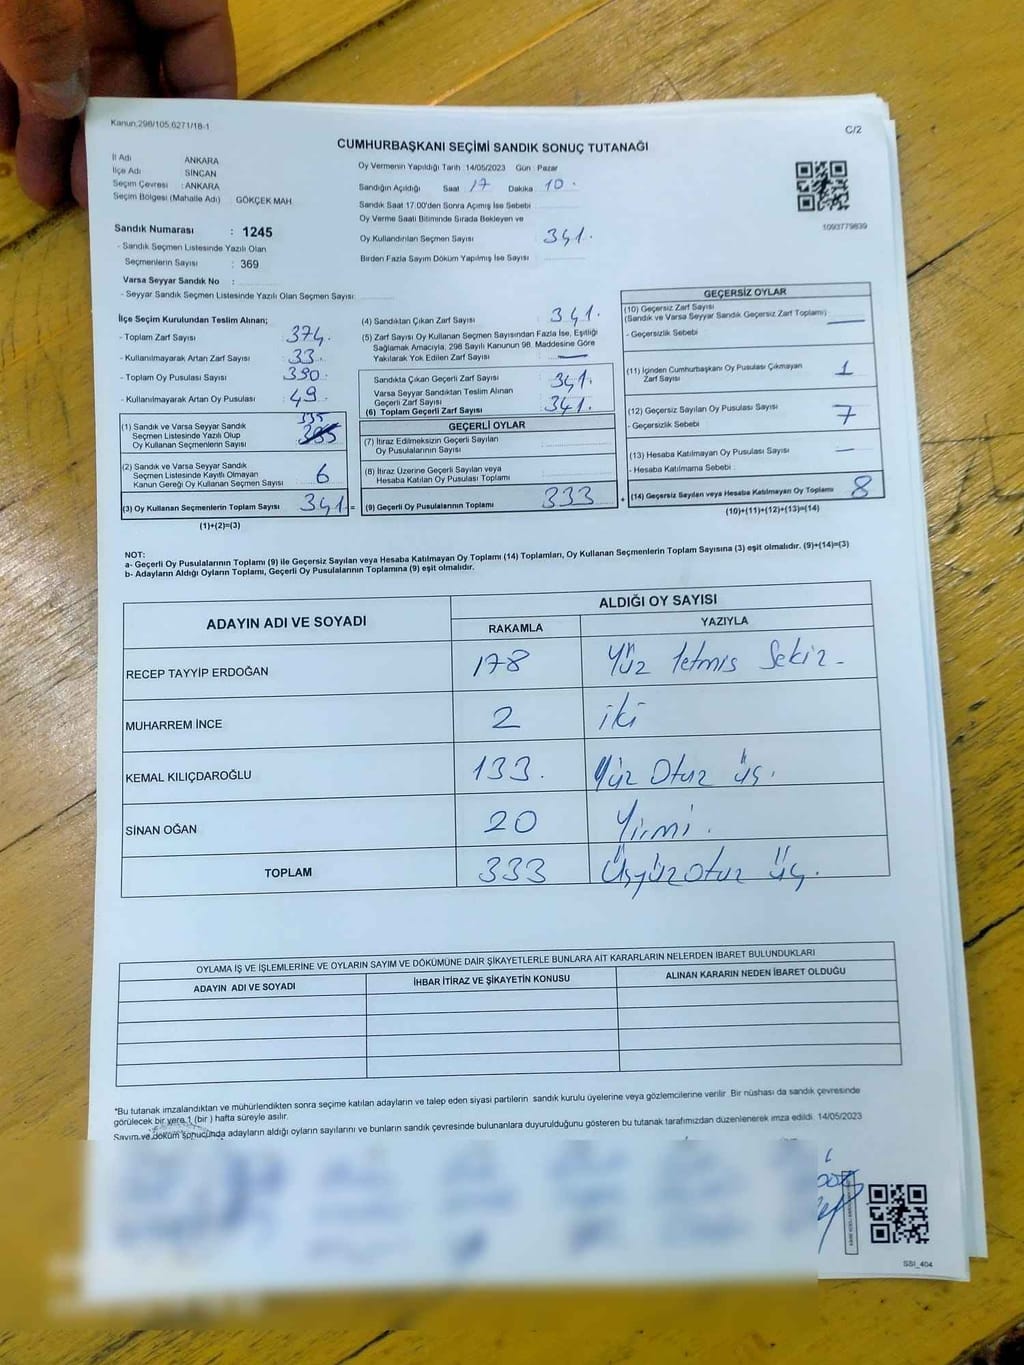 Kanun.298/105,6271/18-1
C/2
CUMHURBAŞKANI SEÇİMİ SANDIK SONUÇ TUTANAĞI
İl Adı ANKARA
İlçe Adı SİNCAN
Seçim Çevresi : ANKARA
Seçim Bölgesi (Mahalle Adı) GÖKÇEK MAH.
Oy Vermenin Yapıldığı Tarih 14/05/2023 Gün Pazar
Sandığın Açıldığı Saat 17 Dakika 10.
Sandık Saat 17.00'den Sonra Açımış İse Sebebi
Oy Verme Saati Bitiminde Sırada Bekleyen ve
Oy Kullandırılan Seçmen Sayısı 341.
Birden Fazla Sayım Döküm Yapılmış İse Sayısı
1093779839
Sandık Numarası : 1245
- Sandık Seçmen Listesinde Yazılı Olan
Seçmenlerin Sayısı : 369
Varsa Seyyar Sandık No :
- Seyyar Sandık Seçmen Listesinde Yazılı Olan Seçmen Sayısı:
İlçe Seçim Kurulundan Teslim Alınan;
- Toplam Zarf Sayısı 374.
- Kullanılmayarak Artan Zarf Sayısı 33.
- Toplam Oy Pusulası Sayısı 390.
- Kullanılmayarak Artan Oy Pusulası 49.
335
(1) Sandık ve Varsa Seyyar Sandık
Seçmen Listesinde Yazılı Olup
Oy Kullanan Seçmenlerin Sayısı
(2) Sandık ve Varsa Seyyar Sandık
Seçmen Listesinde Kayıtlı Olmayan
Kanun Gereği Oy Kullanan Seçmen Sayısı 6
(3) Oy Kullanan Seçmenlerin Toplam Sayısı 341. =
(1)+(2)=(3)
(4) Sandıktan Çıkan Zarf Sayısı 341.
(5) Zarf Sayısı Oy Kullanan Seçmen Sayısından Fazla İse, Eşitliği
Sağlamak Amacıyla, 298 Sayılı Kanunun 98. Maddesine Göre
Yakılarak Yok Edilen Zarf Sayısı —
Sandıkta Çıkan Geçerli Zarf Sayısı 341.
Varsa Seyyar Sandıktan Teslim Alınan
Geçerli Zarf Sayısı
(6) Toplam Geçerli Zarf Sayısı 341.
GEÇERLİ OYLAR
(7) İtiraz Edilmeksizin Geçerli Sayılan
Oy Pusulası Sayısı
(8) İtiraz Üzerine Geçerli Sayılan veya
Hesaba Katılan Oy Pusulası Toplamı
(9) Geçerli Oy Pusulalarının Toplamı 333 +
GEÇERSİZ OYLAR
(10) Geçersiz Zarf Sayısı
(Sandık ve Varsa Seyyar Sandık Geçersiz Zarf Toplamı) —
- Geçersizlik Sebebi
(11) İçinden Cumhurbaşkanı Oy Pusulası Çıkmayan
Zarf Sayısı 1
(12) Geçersiz Sayılan Oy Pusulası Sayısı 7
- Geçersizlik Sebebi
(13) Hesaba Katılmayan Oy Pusulası Sayısı —
- Hesaba Katılmama Sebebi
(14) Geçersiz Sayılan veya Hesaba Katılmayan Oy Toplamı 8
(10)+(11)+(12)+(13)=(14)
NOT:
a- Geçerli Oy Pusulalarının Toplamı (9) ile Geçersiz Sayılan veya Hesaba Katılmayan Oy Toplamı (14) Toplamları, Oy Kullanan Seçmenlerin Toplam Sayısına (3) eşit olmalıdır. (9)+(14)=(3)
b- Adayların Aldığı Oyların Toplamı, Geçerli Oy Pusulalarının Toplamına (9) eşit olmalıdır.
ADAYIN ADI VE SOYADI
ALDIĞI OY SAYISI
RAKAMLA YAZIYLA
RECEP TAYYİP ERDOĞAN 178 Yüz Yetmiş Sekiz -
MUHARREM İNCE 2 iki
KEMAL KILIÇDAROĞLU 133. Yüz Otuz üç.
SİNAN OĞAN 20 Yirmi.
TOPLAM 333 Üçyüz otuz üç.
OYLAMA İŞ VE İŞLEMLERİNE VE OYLARIN SAYIM VE DÖKÜMÜNE DAİR ŞİKAYETLERLE BUNLARA AİT KARARLARIN NELERDEN İBARET BULUNDUKLARI
ADAYIN ADI VE SOYADI İHBAR İTİRAZ VE ŞİKAYETİN KONUSU ALINAN KARARIN NEDEN İBARET OLDUĞU
*Bu tutanak imzalandıktan ve mühürlendikten sonra seçime katılan adayların ve talep eden siyasi partilerin sandık kurulu üyelerine veya gözlemcilerine verilir. Bir nüshası da sandık çevresinde
görülecek bir yere 1 (bir) hafta süreyle asılır.
Sayım ve döküm sonucunda adayların aldığı oyların sayılarını ve bunların sandık çevresinde bulunanlara duyurulduğunu gösteren bu tutanak tarafımızdan düzenlenerek imza edildi. 14/05/2023
SSI_404